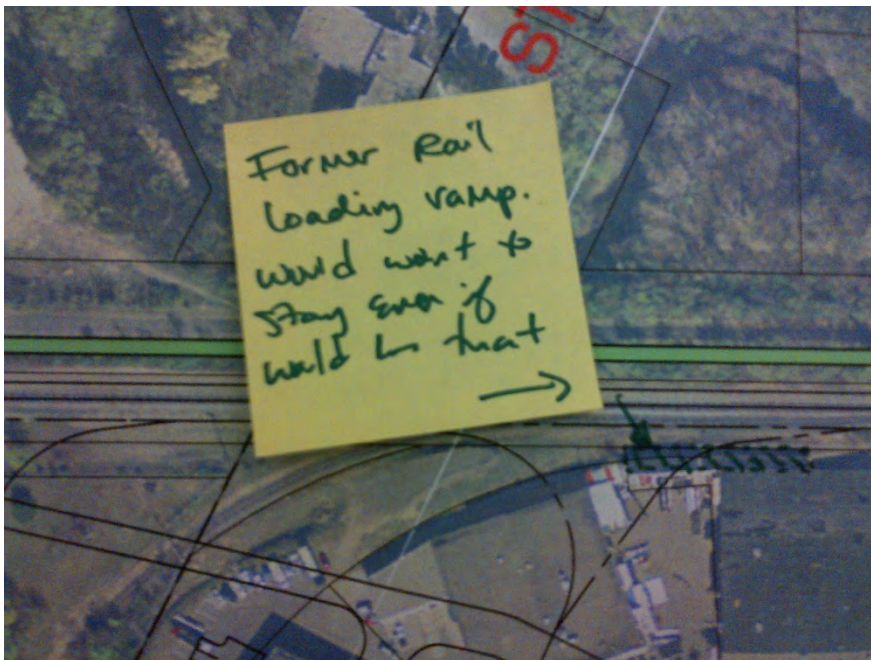 ST
Former Rail
loading ramp.
would want to
stay even if
would that